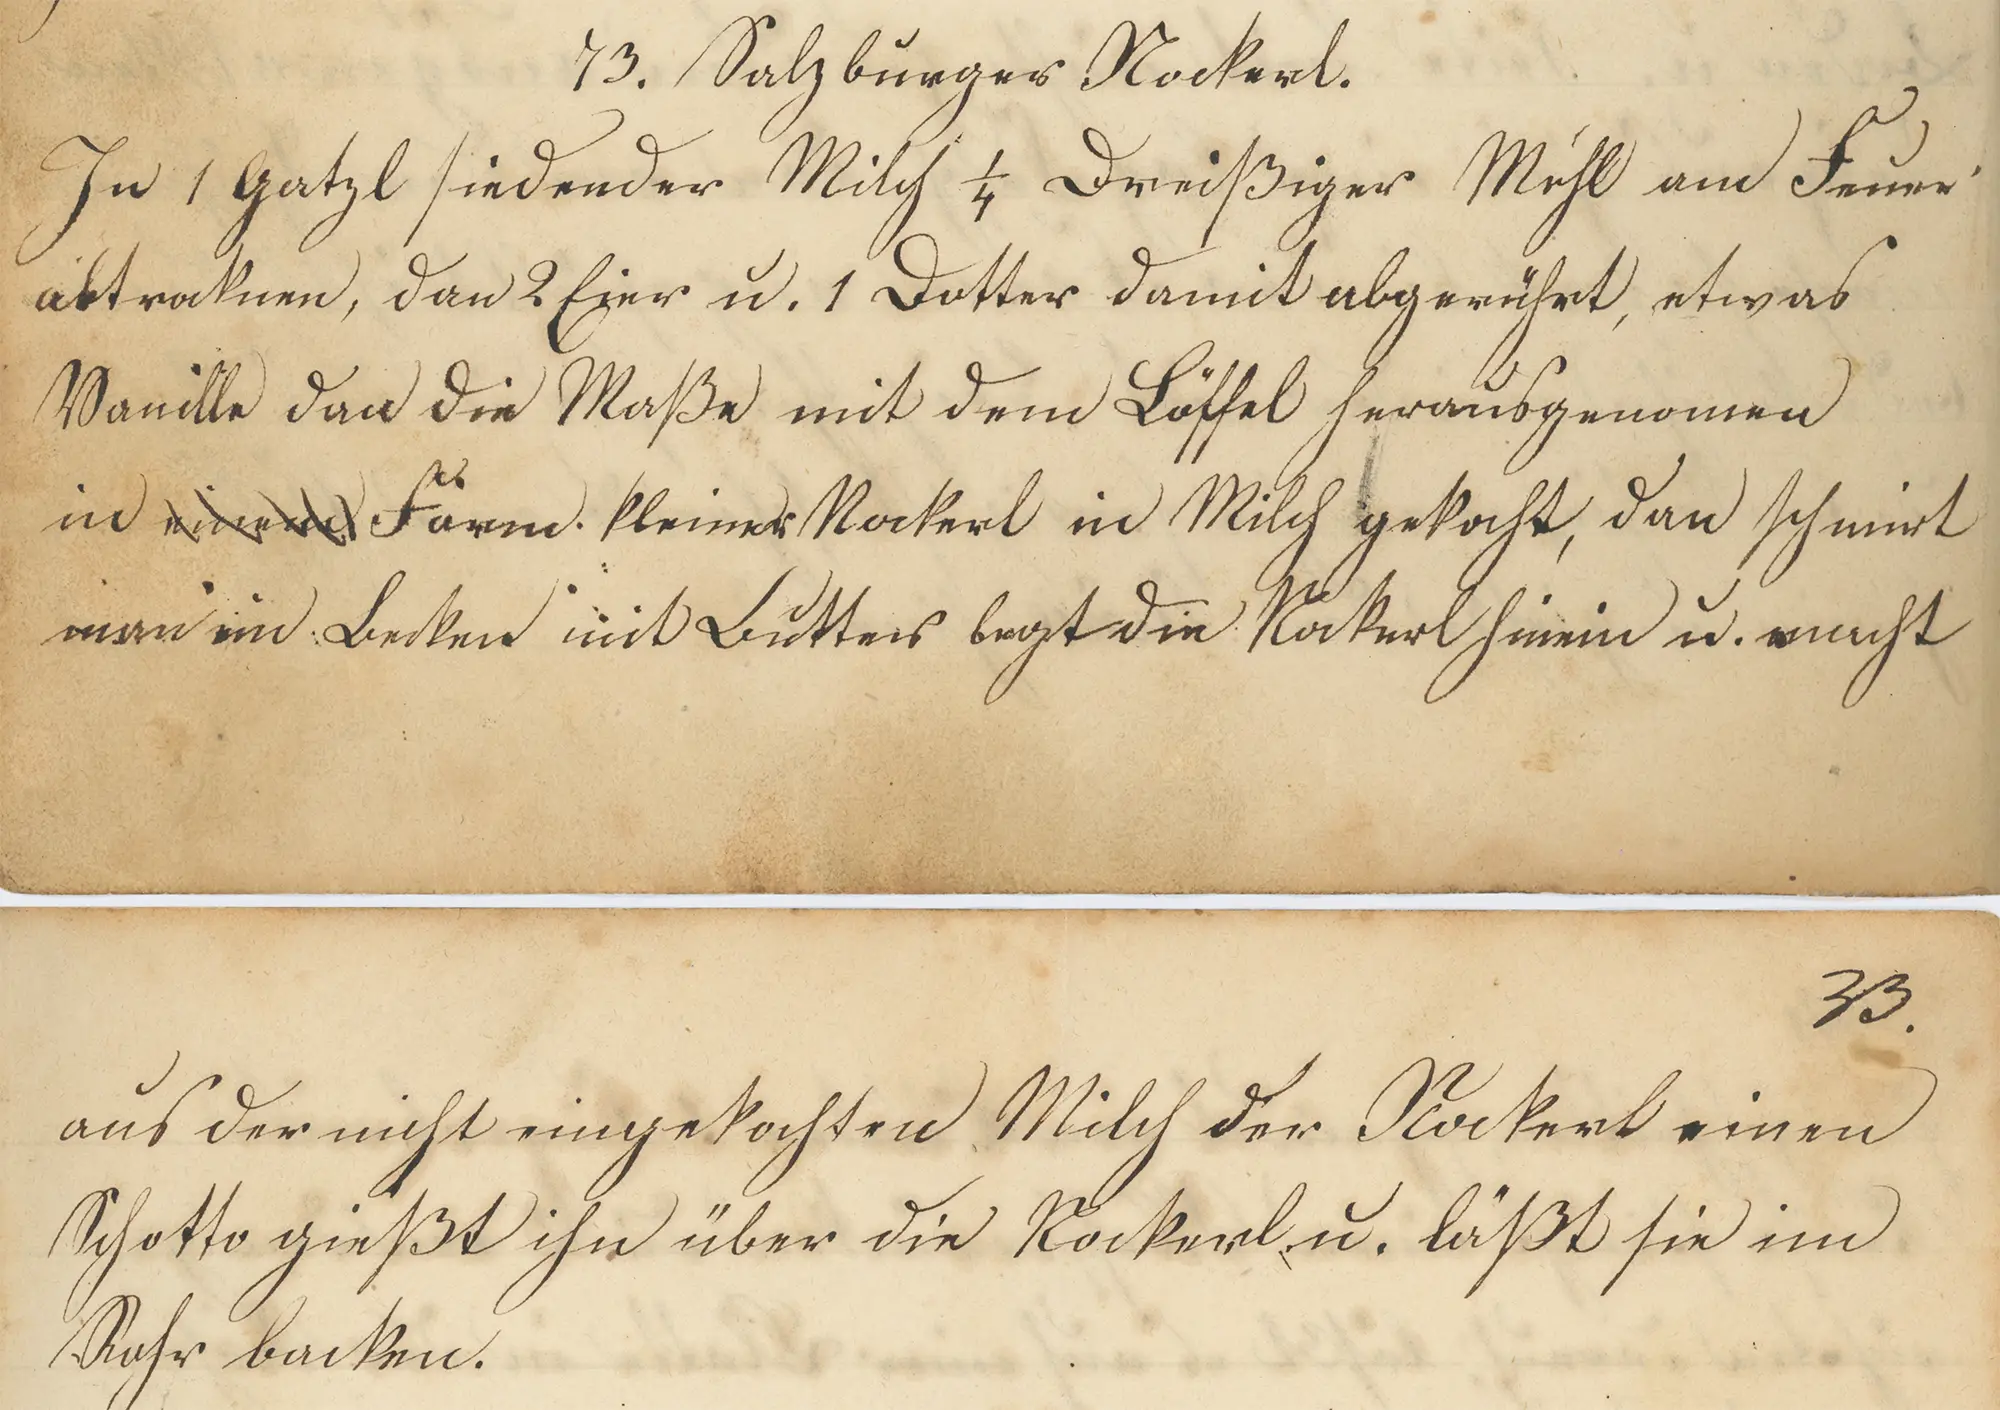 73. Salzburger Nockerl.
In 1 Gatzl siedender Milch 1/4 Dreißiger Mehl am Feuer
abtroknen, dan 2 Eier u. 1 Dotter damit abgerührt, etwas
Vanille dan die Maße mit dem Löffel herausgenomen
in einem Form kleiner Nockerl in Milch gekocht, dan schmirt
man ein Becken mit Butter legt die Nockerl hinein u. macht
33.
aus der nicht eingekochten Milch der Nockerl einen
Schotto gießt ihn über die Nockerl u. läßt sie im
Rohr backen.